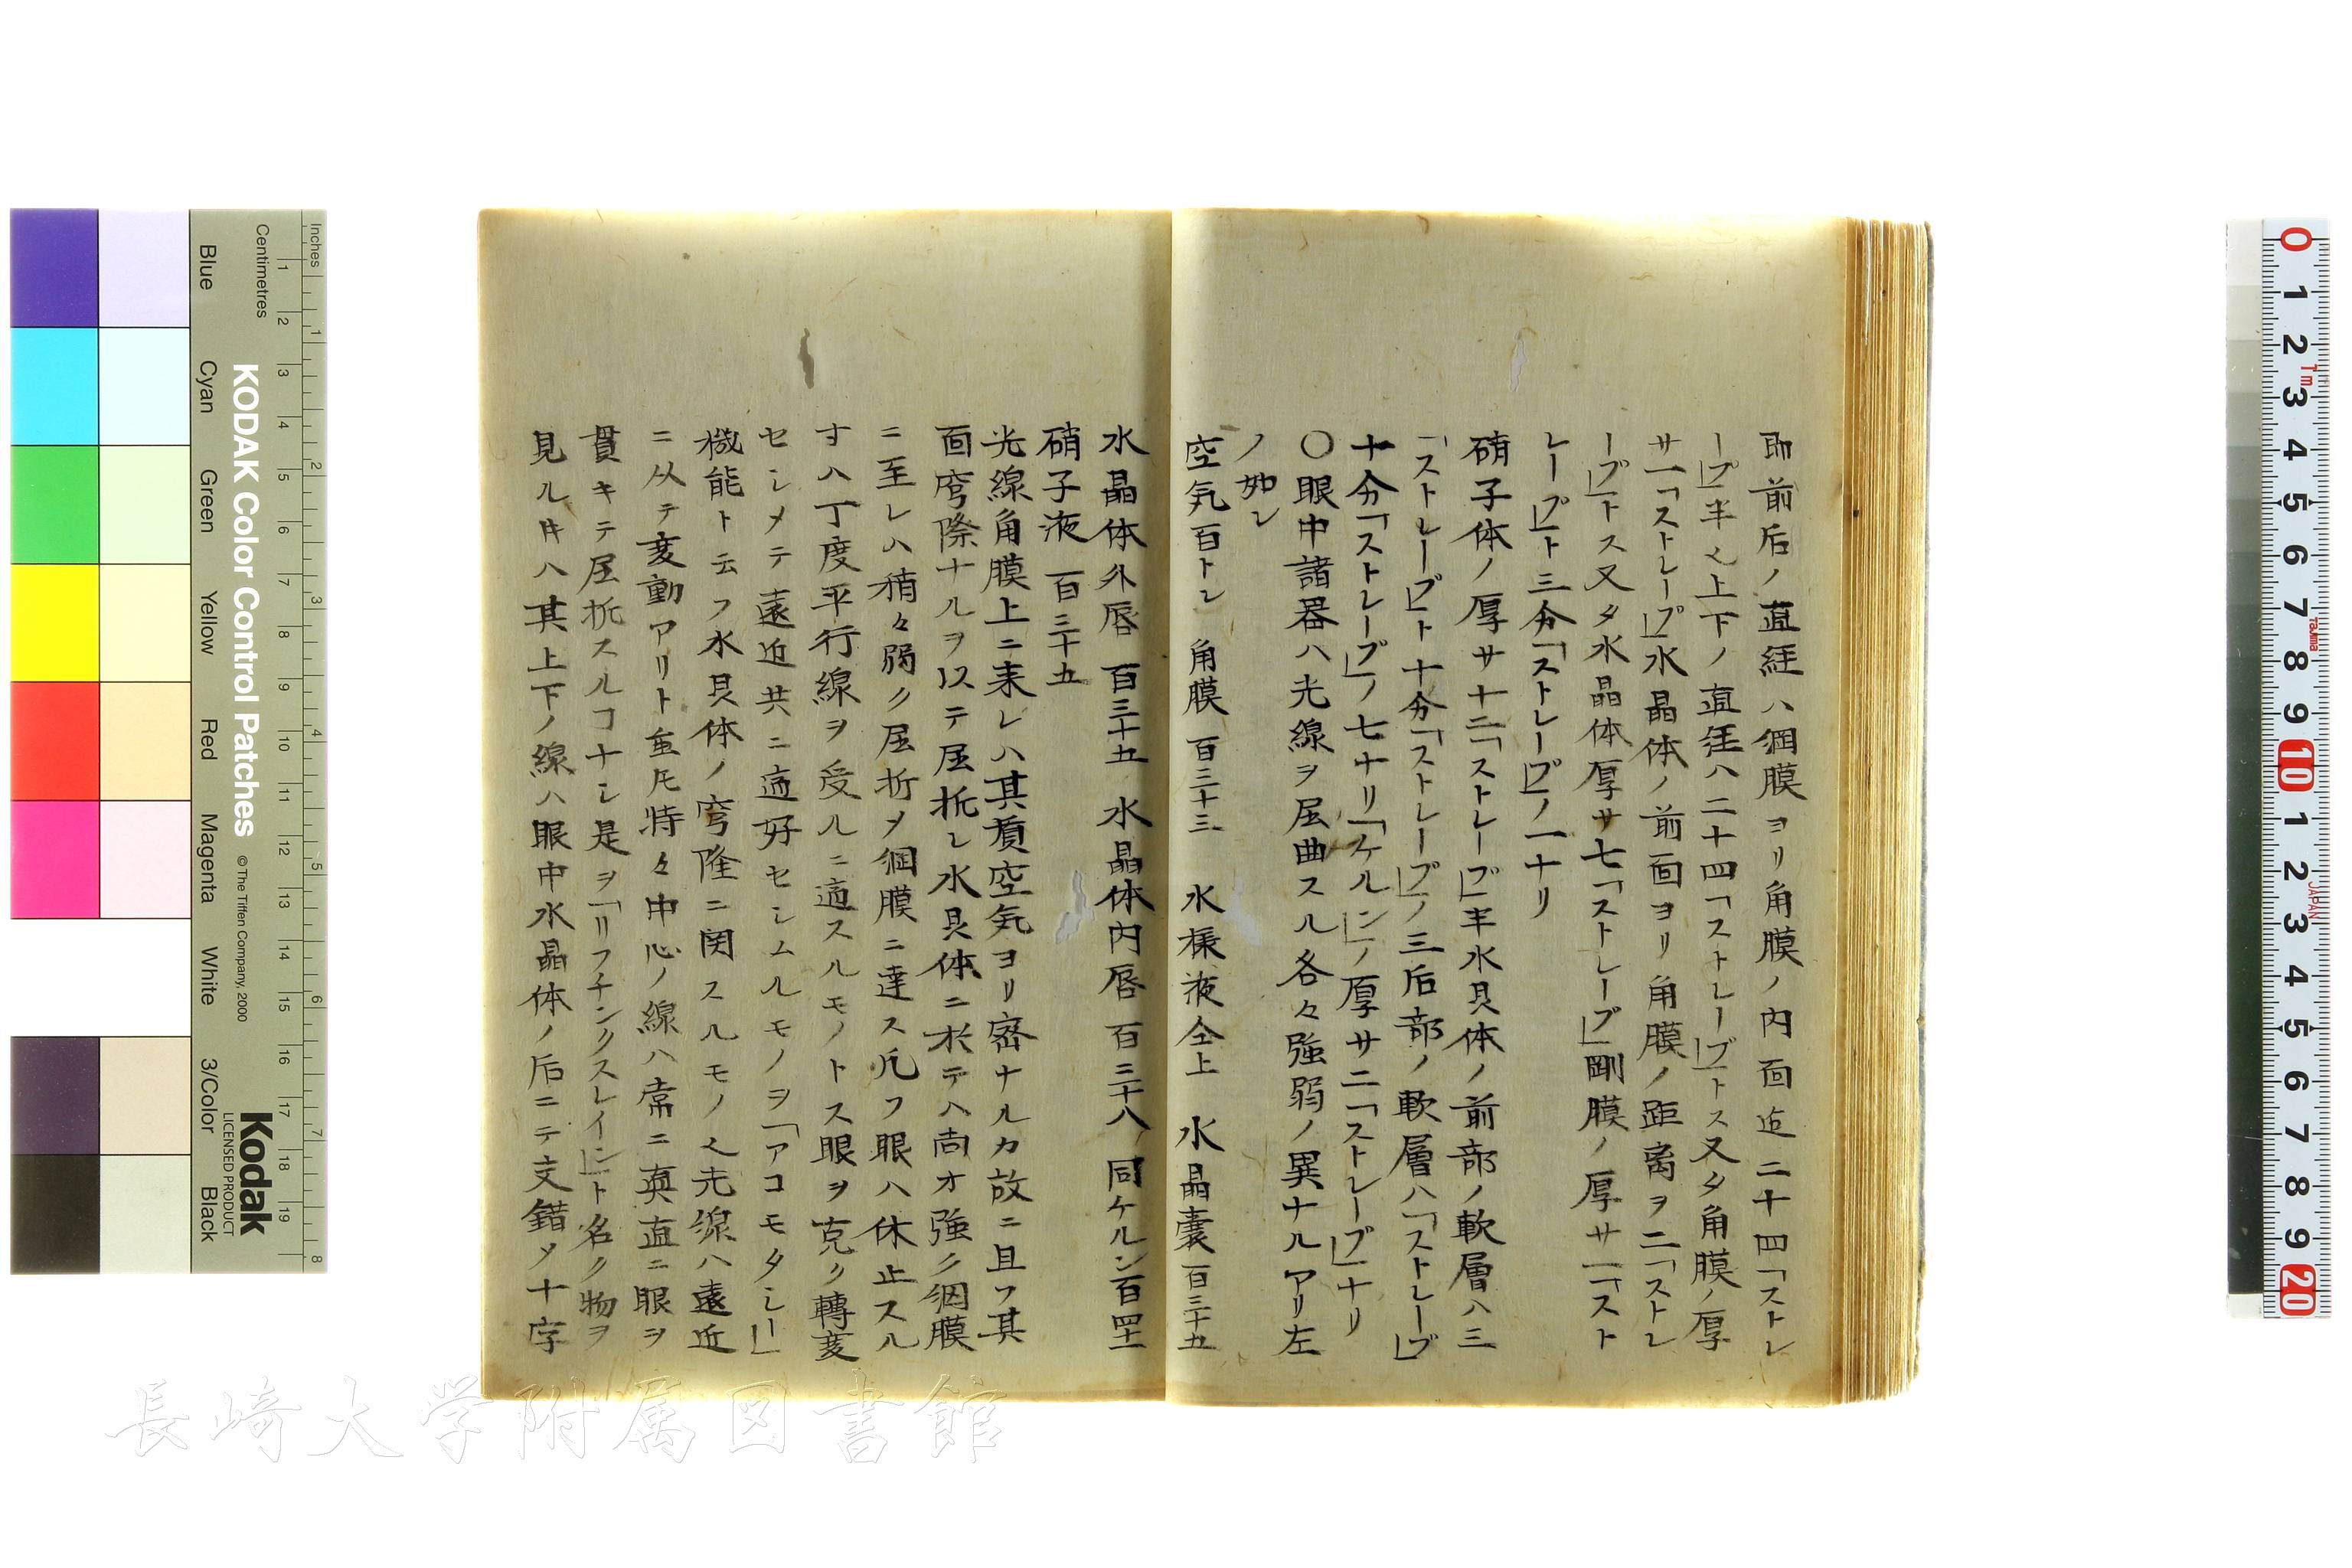 即前后ノ直経ハ網膜ヨリ角膜ノ内面迄二十四「ストレ
ープ」半〆上下ノ直径ハ二十四「ストレープ」トス又タ角膜ノ厚
サ一「ストレープ」水晶体ノ前面ヨリ角膜ノ距离ヲ二「ストレ
ープ」トス又タ水晶体厚サ七「ストレープ」剛膜ノ厚サ一「スト
レープ」ト三分「ストレープ」ノ一ナリ
硝子体ノ厚サ十二「ストレープ」半水具体ノ前部ノ軟層ハ三
「ストレープ」ト十分「ストレープ」ノ三后部ノ軟層ハ「ストレープ」
十分「ストレープ」ノ七ナリ「ケルン」ノ厚サ二「ストレープ」ナリ
〇眼中諸器ハ光線ヲ屈曲スル各々強弱ノ異ナルアリ左
ノ如レ
空気百トレ 角膜 百三十三 水様液仝上 水晶嚢百三十五
水晶体外唇 百三十五 水晶体内唇 百三十八 同ケルン百四十
硝子液 百三十五
光線角膜上ニ来レハ其質空気ヨリ密ナルカ故ニ且ツ其
面穹隆ナルヲ以テ屈折レ水具体ニ於テハ尚オ強ク網膜
ニ至レハ稍々弱ク屈折〆網膜ニ達ス凡ソ眼ハ休止スル
寸ハ丁度平行線ヲ受ルニ適スルモノトス眼ヲ克ク轉変
セシメテ遠近共ニ適好セシムルモノヲ「アコモタシー」
機能ト云フ水具体ノ穹隆ニ関スルモノ〆光線ハ遠近
ニ从テ変動アリト虽𪜈特々中心ノ線ハ常ニ真直ニ眼ヲ
貫キテ屈折スルコナシ是ヲ「リフチンクスレイン」ト名ク物ヲ
見ル𬼀ハ其上下ノ線ハ眼中水晶体ノ后ニテ交錯〆十字
Inches
Centimetres
KODAK Color Control Patches
© The Tiffen Company, 2000
Kodak
LICENSED PRODUCT
Blue
Cyan
Green
Yellow
Red
Magenta
White
3/Color
Black
長崎大学附属図書館